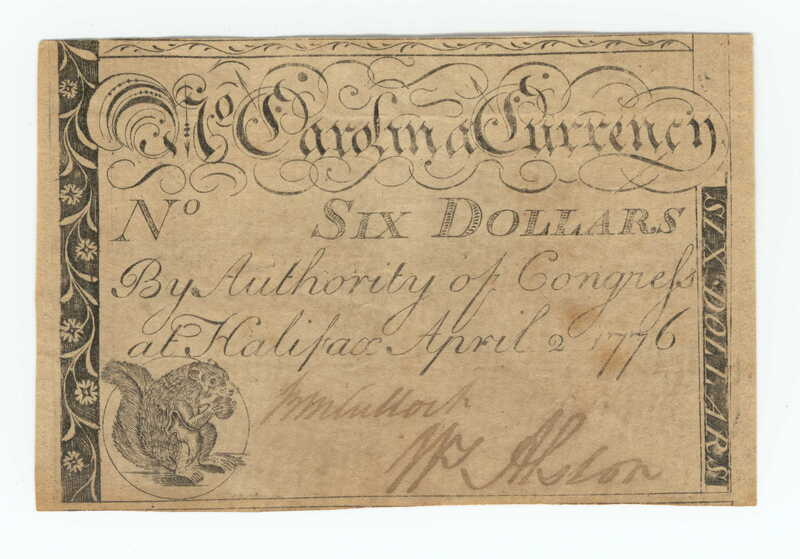 No. Carolina Currency.
No SIX DOLLARS
By Authority of Congress
at Halifax April 2 1776
SIX DOLLARS
Wm Alston